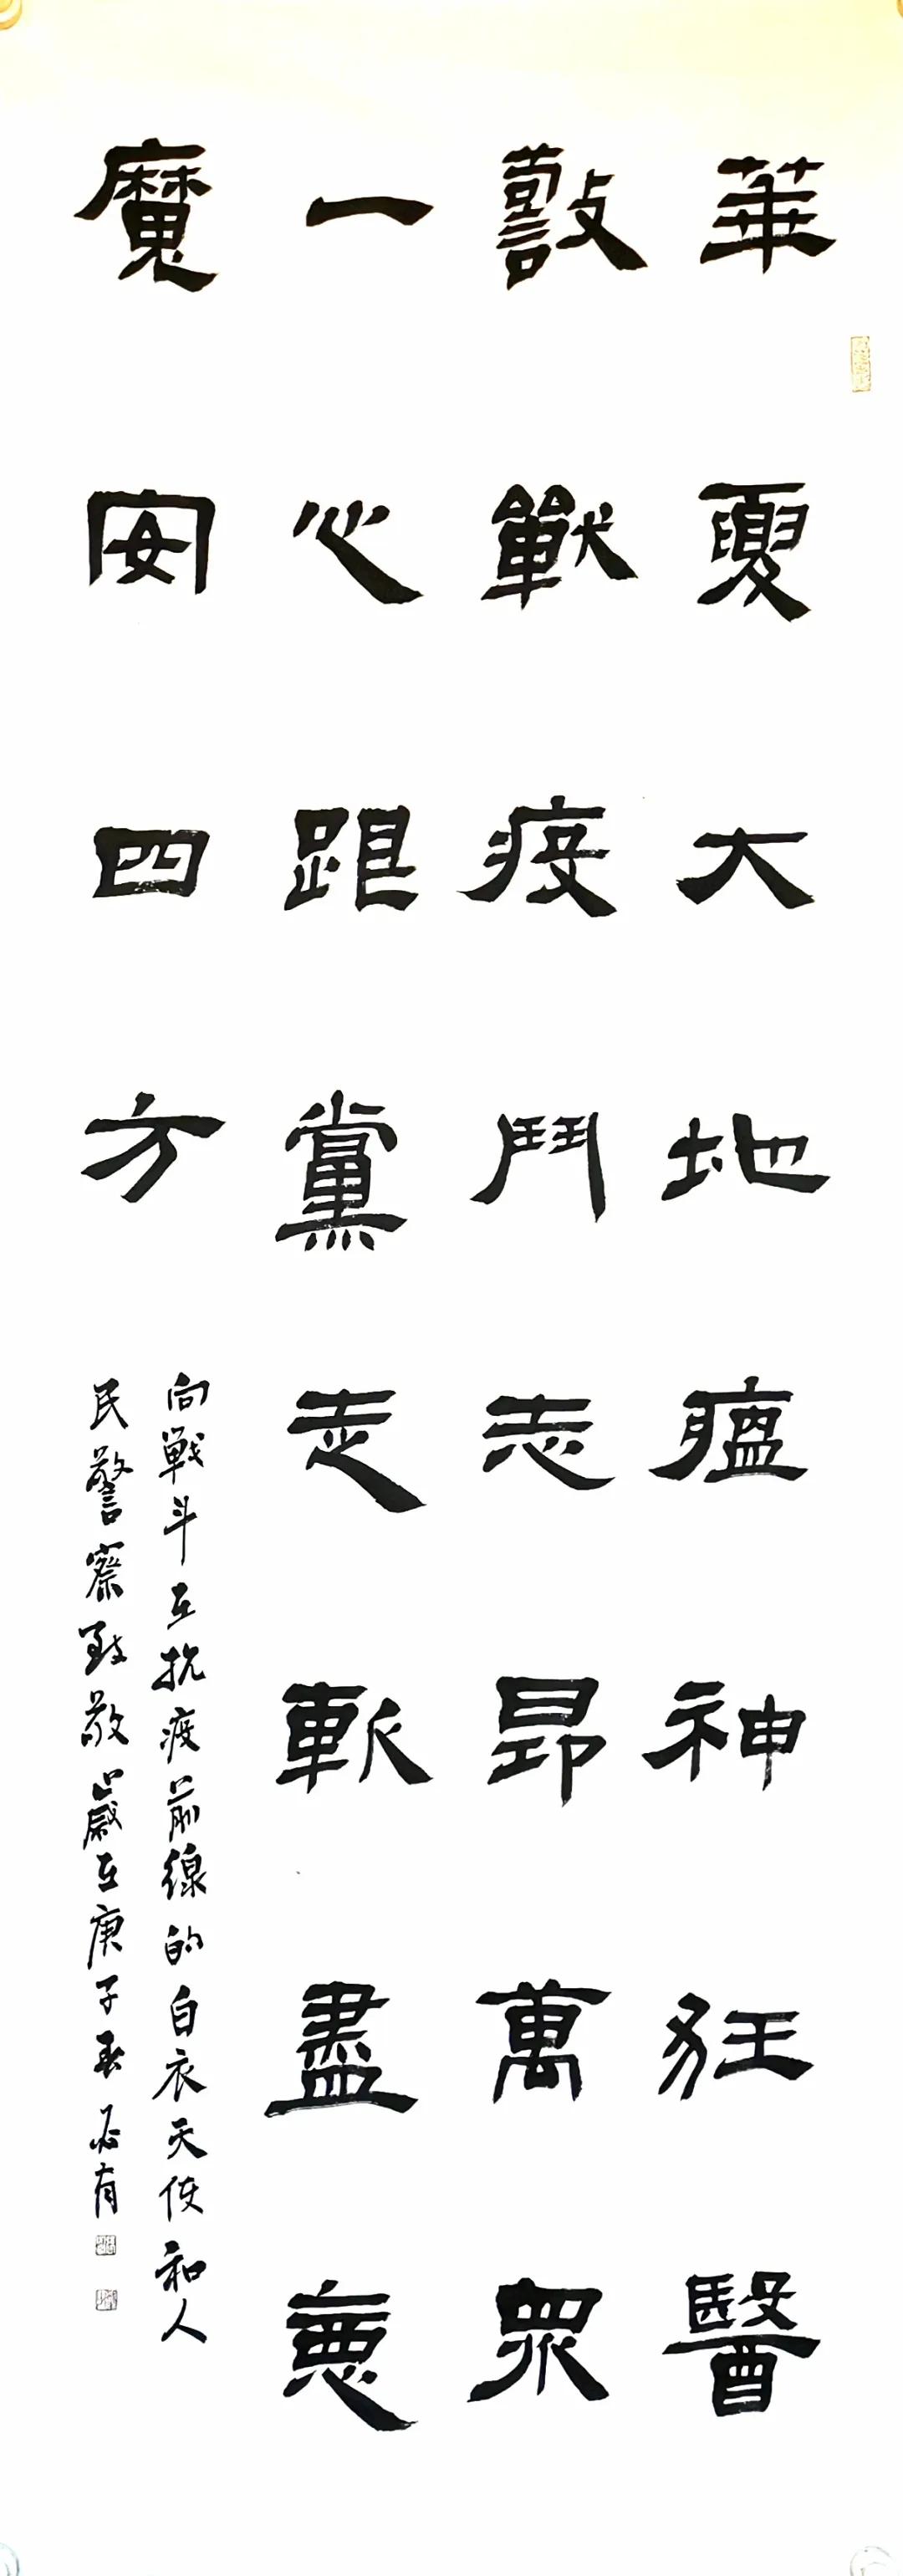 華夏大地瘟神狂醫
警戰疫鬥志昂萬眾
一心跟黨走斬盡惡
魔安四方
向戰斗在抗疫前線的白衣天使和人
民警察致敬歲在庚子春必有